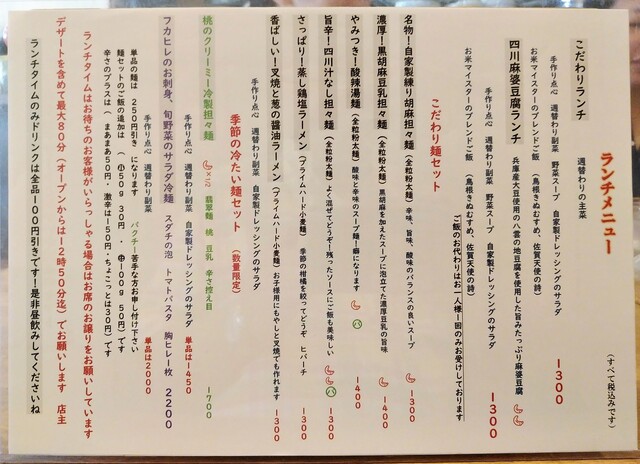 ランチメニュー
(すべて税込みです)
こだわりランチ
週替わりの主菜
手作り点心 週替わり副菜 野菜スープ 自家製ドレッシングのサラダ
お米マイスターのブレンドご飯 (島根きぬむすめ、佐賀天使の詩)
1300
四川麻婆豆腐ランチ 兵庫産大豆使用の八雲の地豆腐を使用した旨みたっぷり麻婆豆腐
手作り点心 週替わり副菜 野菜スープ 自家製ドレッシングのサラダ
1300
お米マイスターのブレンドご飯 (島根きぬむすめ、佐賀天使の詩)
ご飯のお代わりはお一人様一回のみお受けしております
こだわり麺セット
名物!自家製練り胡麻担々麺 (全粒粉太麺) 辛味、旨味、酸味のバランスの良いスープ 1300
濃厚!黒胡麻豆乳担々麺 (全粒粉太麺) 黒胡麻を加えたスープに泡立てた濃厚豆乳の旨味 1400
やみつき!酸辣湯麺 (全粒粉太麺) 酸味と辛味のスープ麺!癖になります パ 1400
旨辛!四川汁なし担々麺 (全粒粉太麺) よく混ぜてどうぞ!残ったソースにご飯も美味しい パ 1300
さっぱり!蒸し鶏塩ラーメン (プライムハード小麦麺) 季節の柑橘を絞ってどうぞ ヒバーチ 1300
香ばしい!叉焼と葱の醤油ラーメン (プライムハード小麦麺) お子様用にもやしと叉焼でも作れます 1300
手作り点心 週替わり副菜 自家製ドレッシングのサラダ
季節の冷たい麺セット (数量限定)
桃のクリーミー冷製担々麺 ×1/2 翡翠麺 桃 豆乳 辛さ控え目 1700
手作り点心 週替わり副菜 自家製ドレッシングのサラダ 単品は1450
フカヒレのお刺身、旬野菜のサラダ冷麺 スダチの泡 トマトパスタ 胸ヒレ一枚 2200
手作り点心 週替わり副菜 単品は2000
単品の麺は 250円引き になります パクチー苦手な方お申し付け下さい
麺セットのご飯の追加は (小50g 30円 ・ 中100g 50円) です
辛さのプラスは (まあまあ50円・激辛は150円・ちょこっとは30円) です
ランチタイムはお待ちのお客様がいらっしゃる場合はお席のお譲りをお願いしています
デザートを含めて最大80分 (オープンからは12時50分迄) でお願いします 店主
ランチタイムのみドリンクは全品100円引きです!是非昼飲みしてくださいね